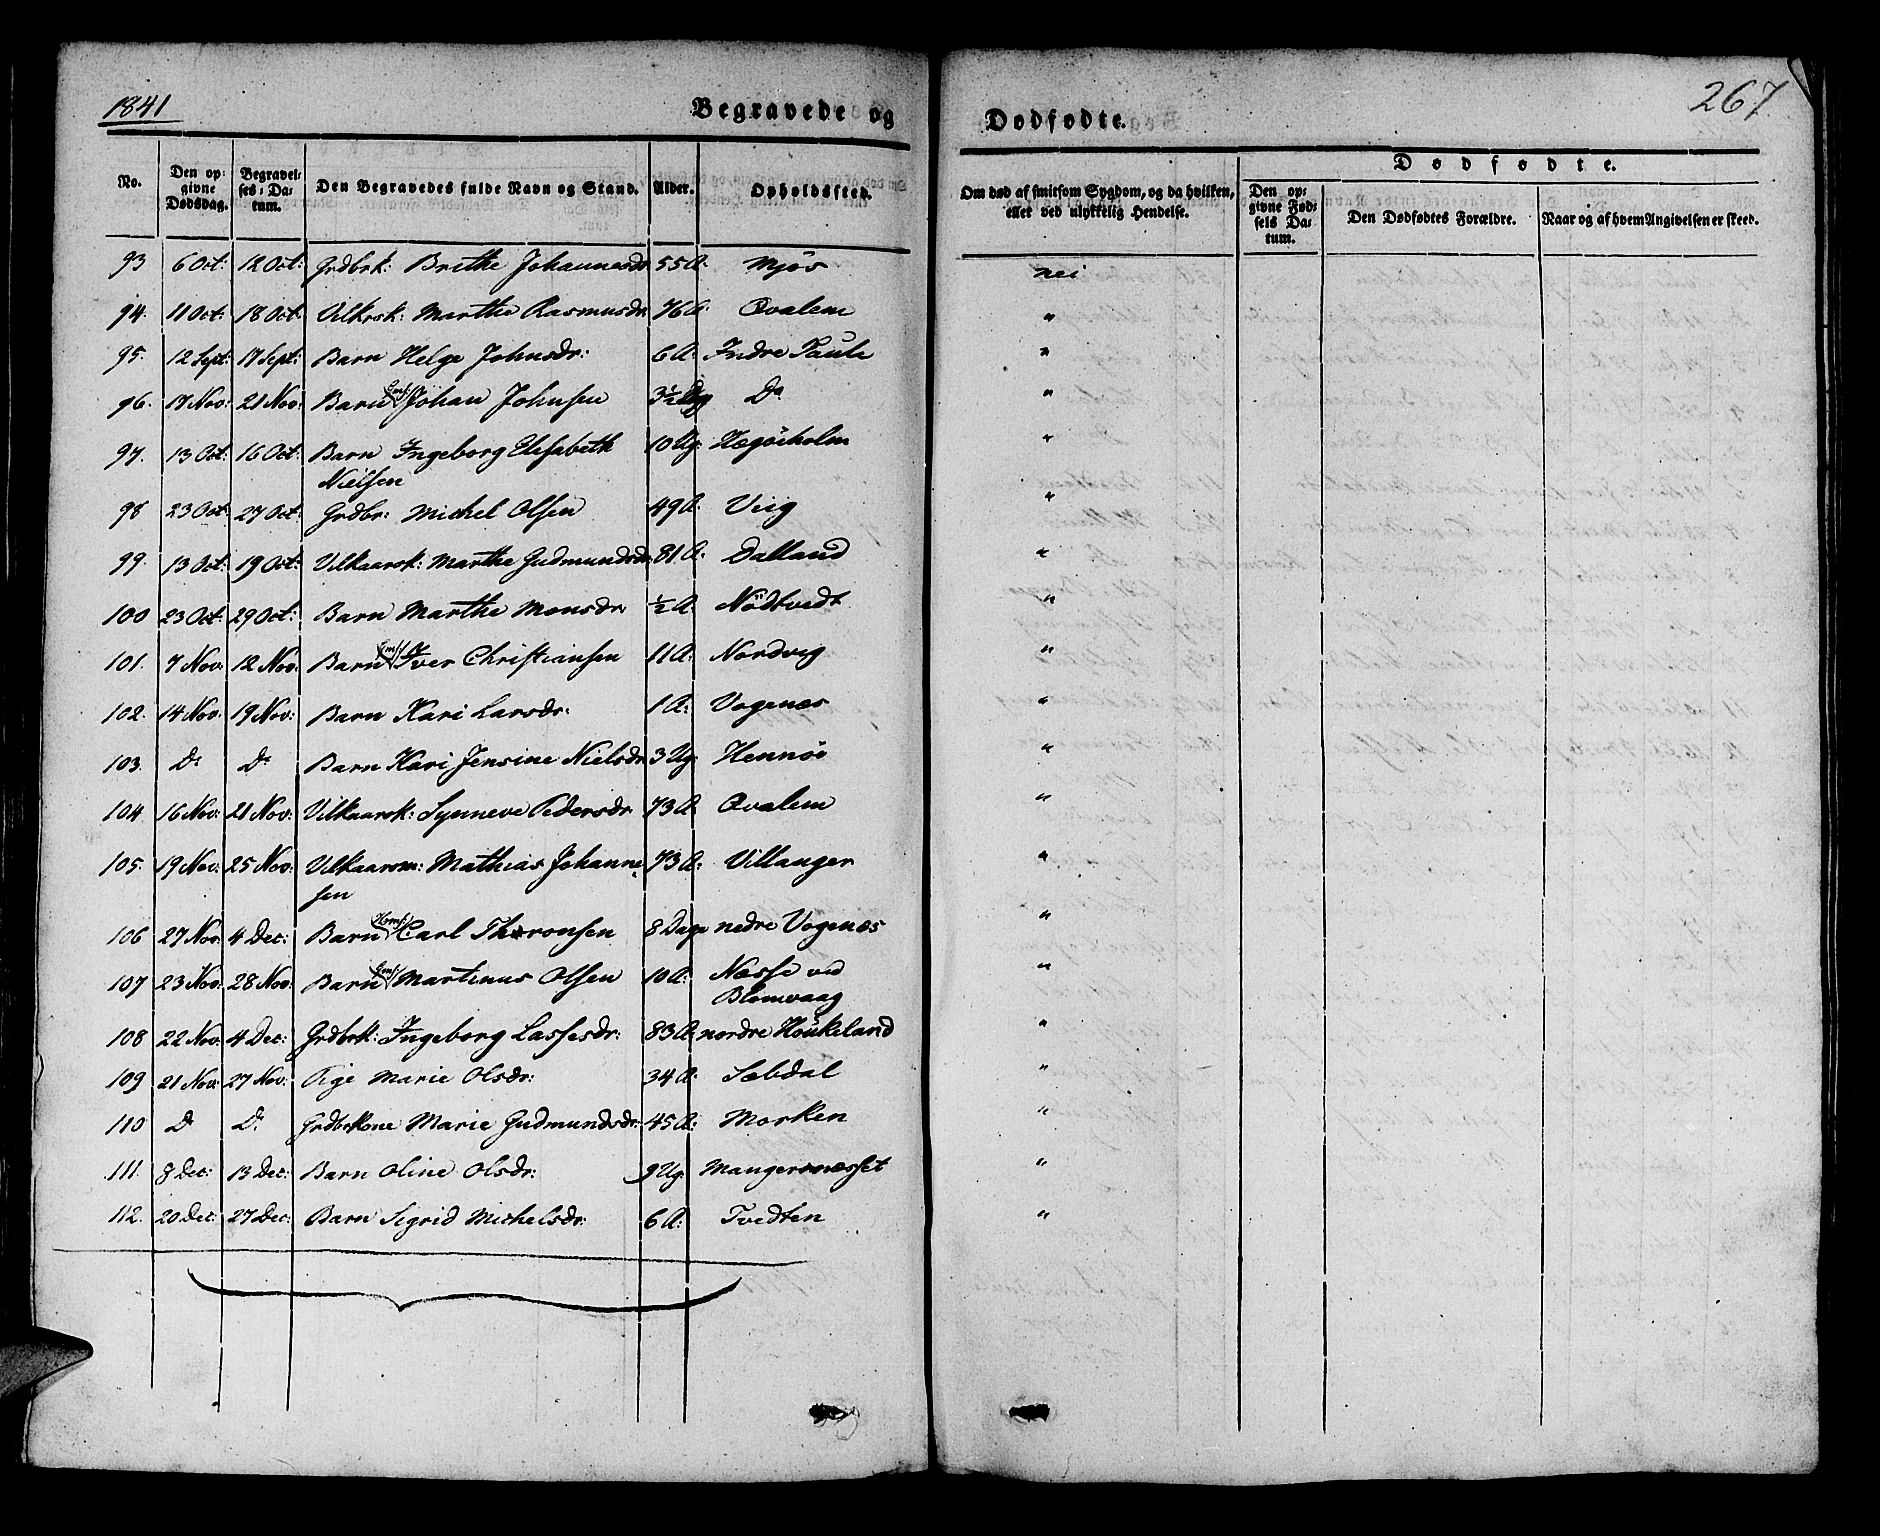 1841
Begravede og Dødfødte.
267
No.
Den op-
givne
Dødsdag.
Begravel-
ses-Da-
tum.
Den Begravedes fulde Navn og Stand.
Alder.
Opholdssted.
Om død af smitsom Sygdom, og da hvilken,
eller ved ulykkelig Hendelse.
Dødfødte.
Den op-
givne Fød-
sels Da-
tum.
Den Dødfødtes Forældre.
Naar og af hvem Angivelsen er skeed.
93 6 Oct: 12 Oct: Grdbrk: Brithe Johannesdr 55 A: Mjøs nei
94. 11 Oct: 18 Oct: Vilkrsk: Marthe Rasmusdr 76 A: Qvalem "
95. 12 Sept: 17 Sept: Barn Helge Johnsdr: 6 A: Indre Taule "
96. 17 Nov: 21 Nov: Barn Gms: Johan Johnsen 3½ Dg D° "
97. 13 Oct: 16 Oct: Barn Ingeborg Elisabeth 10 Ug: Hegøeholm "
Nielsen
98 23 Oct: 27 Oct: Grdbr: Michel Olsen 49 A: Viig "
99. 13 Oct: 19 Oct: Vilkaarsk: Marthe Gudmundsdr 81 A: Dalland "
100 23 Oct: 29 Oct: Barn Marthe Monsdr ½ A: Nödtvedt "
101. 7 Nov: 12 Nov: Barn Gms: Iver Christiansen 11 A: Nordvig "
102. 14 Nov: 19 Nov: Barn Kari Larsdr: 1 A: Vogenæs "
103. D° D° Barn Kari Jensine Nielsdr 3 Ug: Hennöe "
104. 16 Nov: 21 Nov: Vilkaarsk: Synneve Pedersdr 73 A: Qvalem "
105. 19 Nov: 25 Nov: Vilkaarsm: Mathias Johanne- 73 A: Villanger "
sen
106 27 Nov: 4 Dec: Barn Hms: Carl Thoronsen 8 Dage nedre Vogenæs "
107 23 Nov: 28 Nov: Barn Gms: Martinus Olsen 10 A: Næsse ved "
Blomvaag
108 22 Nov: 4 Dec: Grdbrk: Ingeborg Lassesdr: 83 A: nordre Höukeland "
109 21 Nov: 27 Nov: Pige Marie Olsdr: 34 A: Sæbdal "
110 D° D° Grdbrkone Marie Gudmundsdr: 45 A: Morken "
111. 8 Dec: 13 Dec: Barn Oline Olsdr: 9 Ug: Mangersnæsset "
112. 20 Dec: 27 Dec: Barn Sigrid Michelsdr: 6 A: Tvedten "